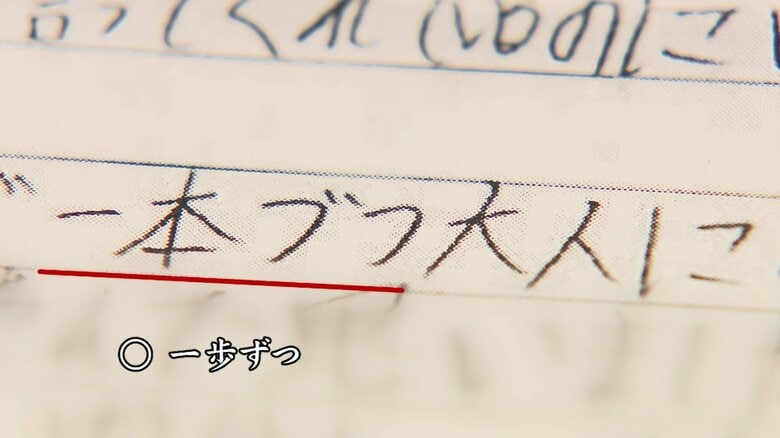 くれ のに
一本ブつ大人に
○ 一歩ずつ